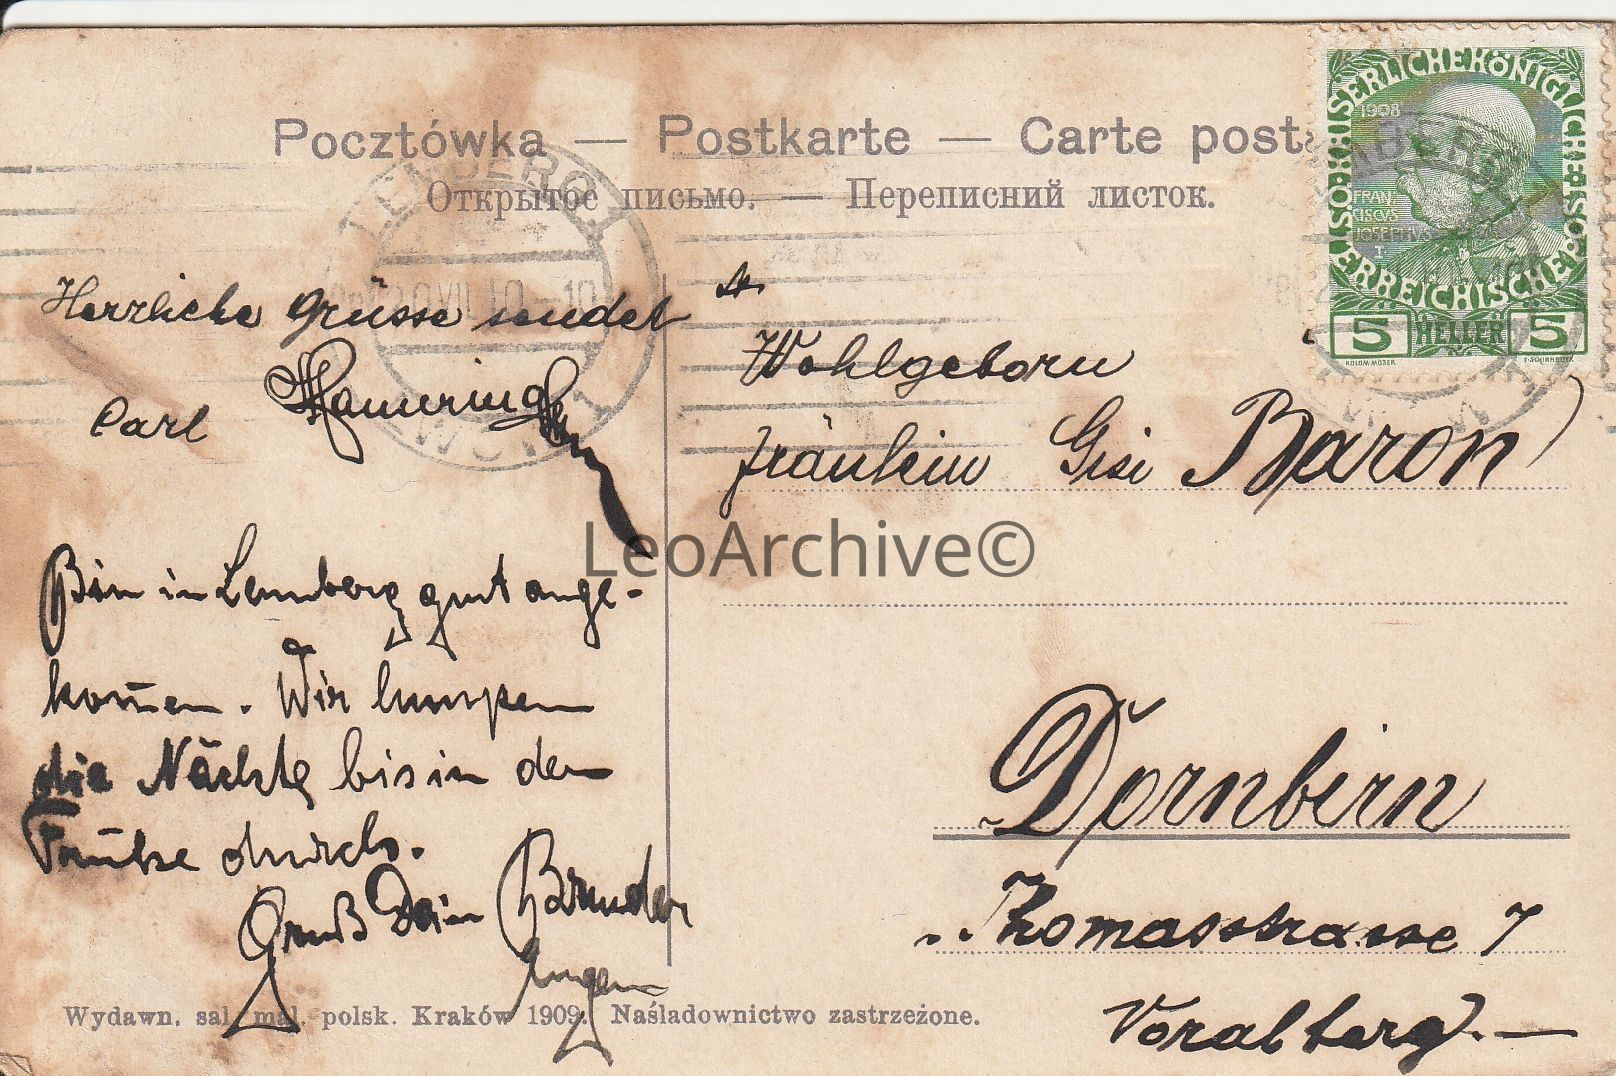 Pocztówka — Postkarte — Carte posta
Открытое письмо. — Переписний листок.
KAISERLICHE KÖNIGLICHE ÖSTERREICHISCHE
1908
FRAN
CISCVS
IOSEPHVS
I
5 HELLER 5
KOLOM. MOSER F. SCHIRNBÖCK
LEMBERG
LWÓW
Herzliche Grüsse sendet
Carl
Bin in Lemberg gut ange-
kom̅en. Wir lumpen
die Nächte bis in der
Frühe durch.
Gruß Dein Bruder
Eugen
Wohlgeborn
Fräulein Gisi Baron
Dornbirn
Thomasstrasse 7
Voralberg. —
LeoArchive©
Wydawn. sal. mal. polsk. Kraków 1909. Naśladownictwo zastrzeżone.